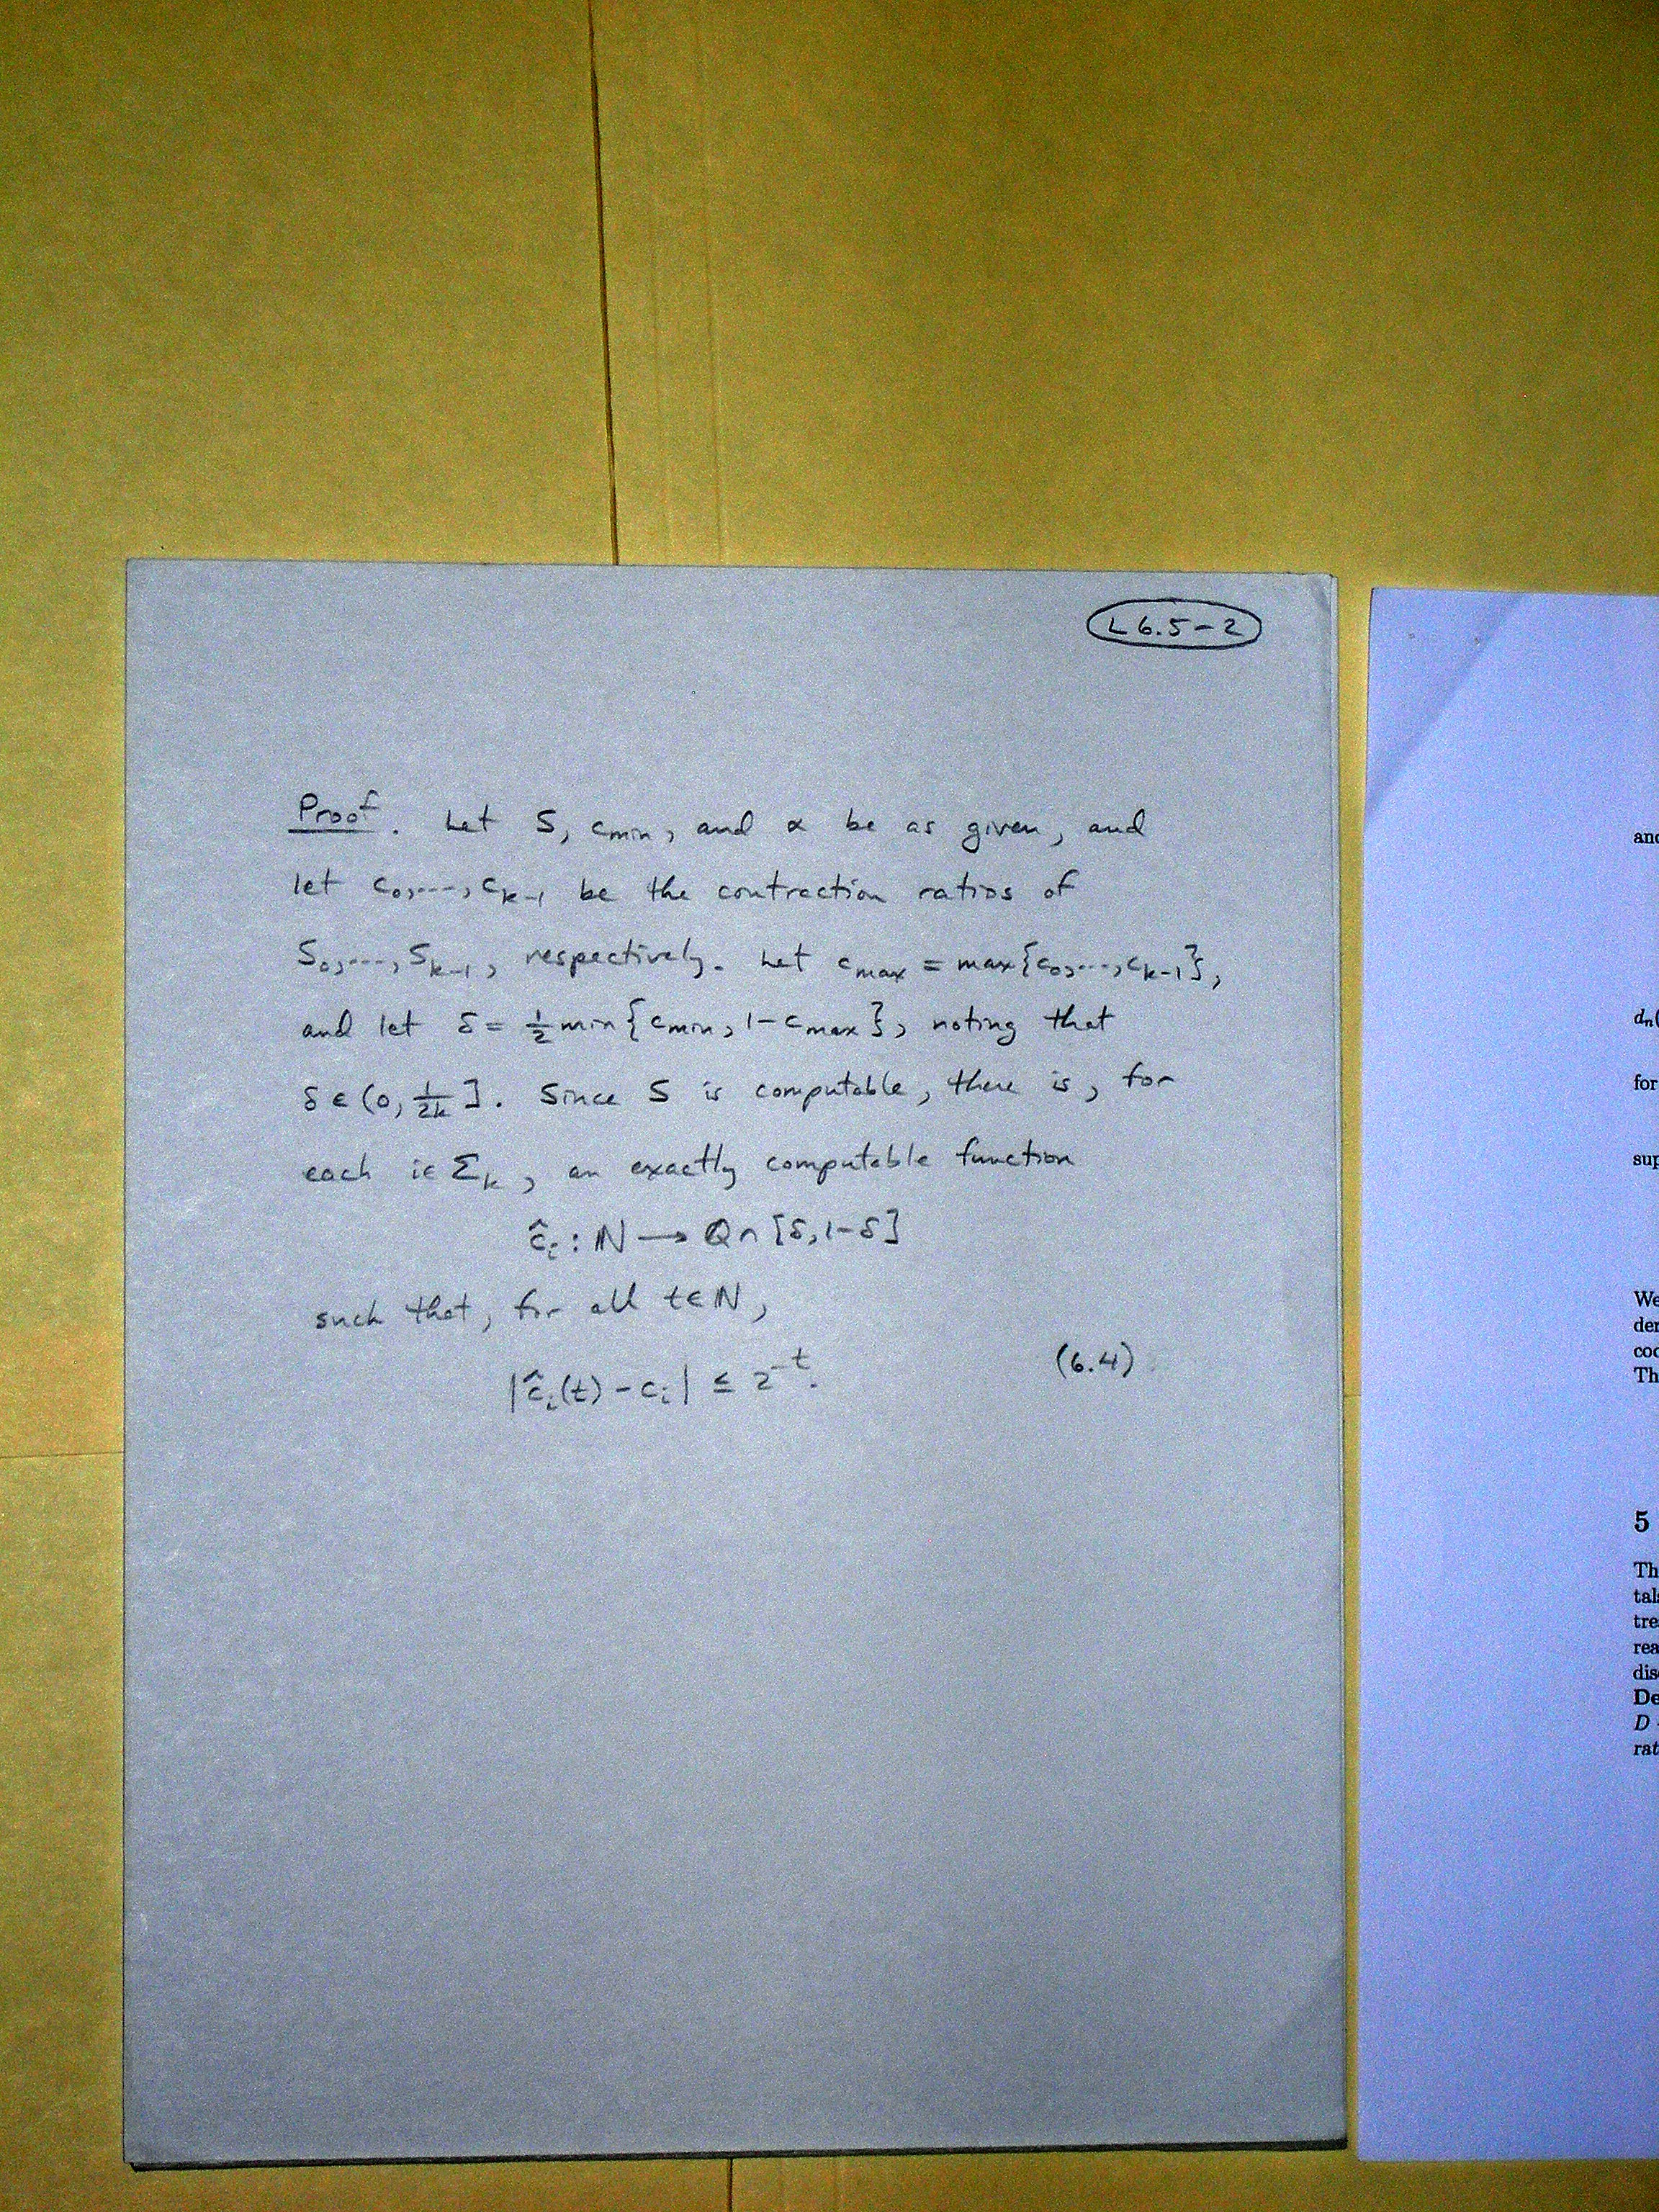 L 6.5-2
Proof. Let S, c_min, and α be as given, and
let c_0,---,c_{k-1} be the contraction ratios of
S_0,---,S_{k-1}, respectively. Let c_max = max{c_0,---,c_{k-1}},
and let δ = 1/2 min{c_min, 1-c_max}, noting that
δ ∈ (0, 1/2k]. Since S is computable, there is, for
each i ∈ Σ_k, an exactly computable function
ĉ_i : ℕ → ℚ ∩ [δ, 1-δ]
such that, for all t ∈ ℕ,
|ĉ_i(t) - c_i| ≤ 2^{-t}. (6.4)
and
d_n(
for
sup
We
der
coo
Th
5
Th
tal
tre
rea
dis
De
D
rat